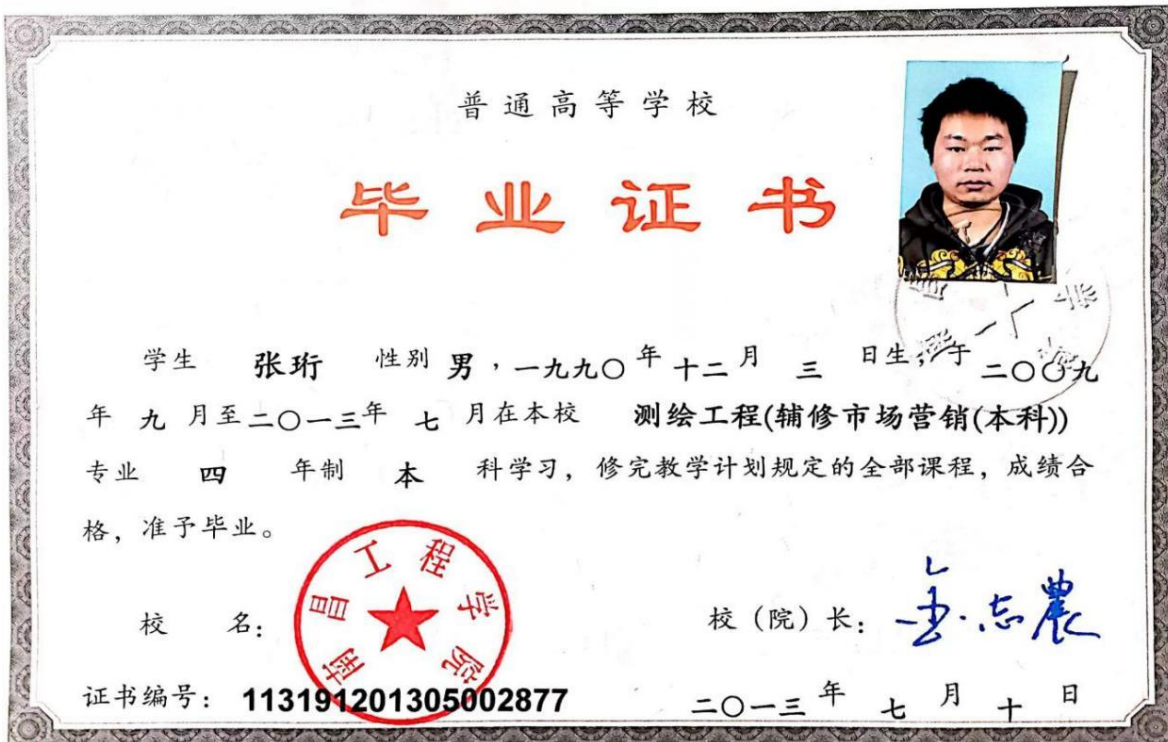 普通高等学校
毕业证书
学生 张珩 性别 男，一九九〇年 十二 月 三 日生，于 二〇〇九
年 九 月至二〇一三年 七 月在本校 测绘工程(辅修市场营销(本科))
专业 四 年制 本 科学习，修完教学计划规定的全部课程，成绩合
格，准予毕业。
南昌工程学院
校 名： 校（院）长：金志農
证书编号：113191201305002877 二〇一三 年 七 月 十 日